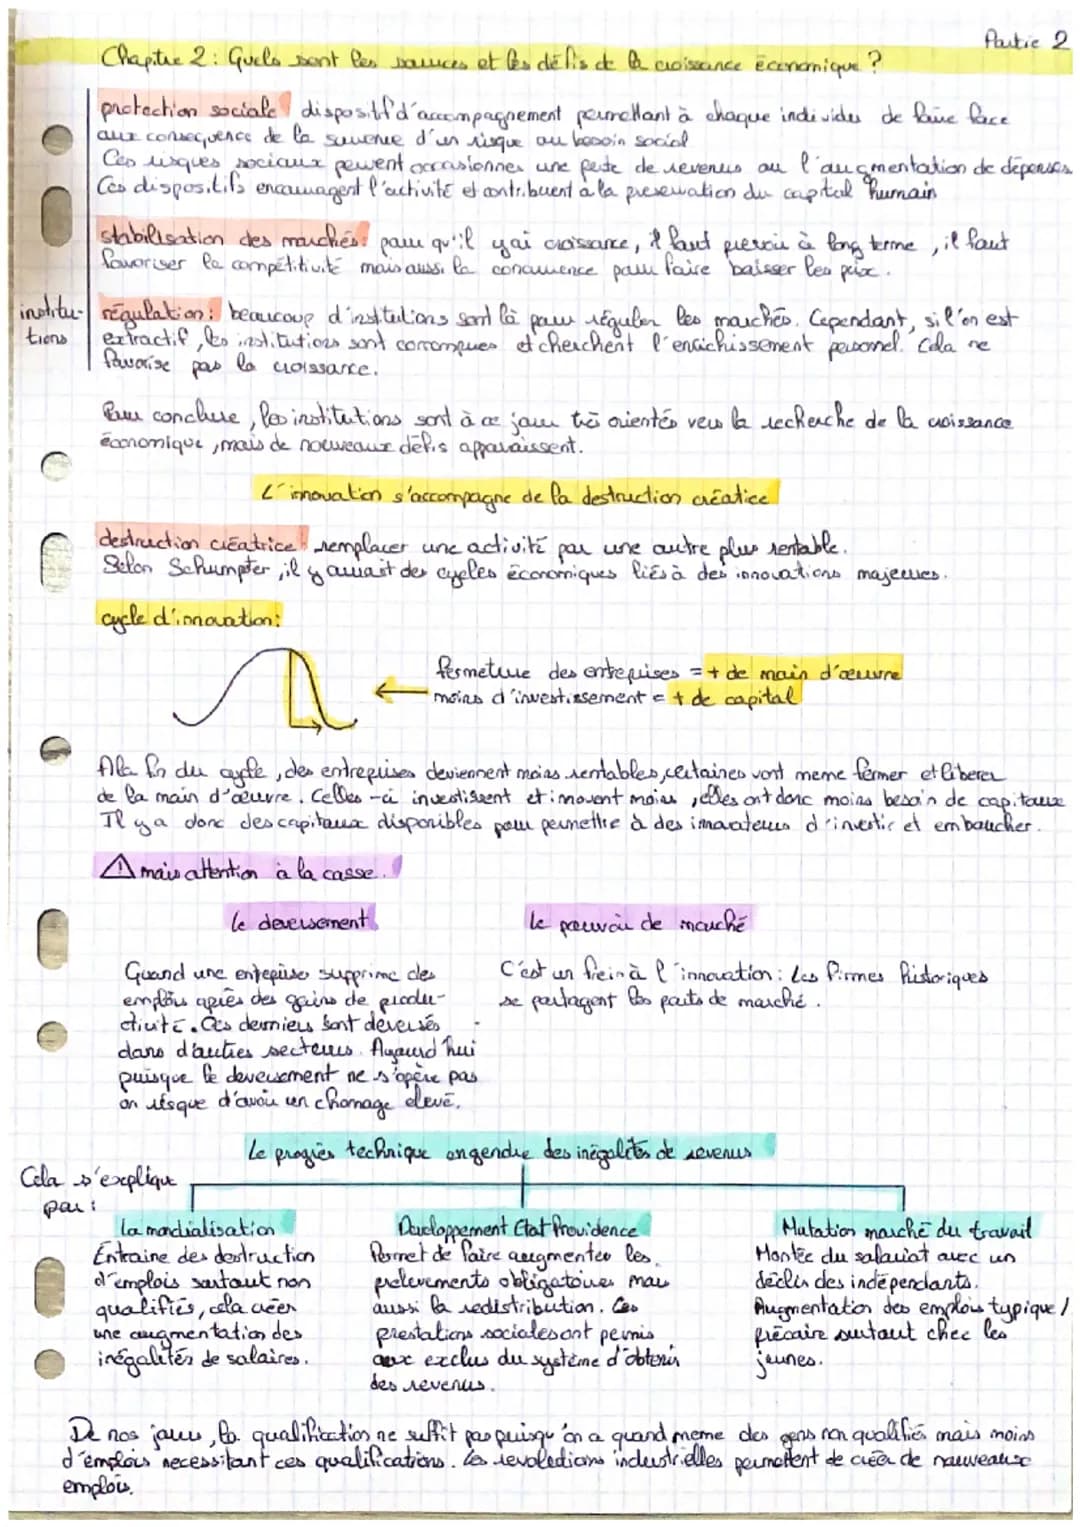 Partie 2
Chapitre 2 : Quels sont les sources et les défis de la croissance économique ?
protection sociale : dispositif d'accompagnement permettant à chaque individus de faire face
aux consequence de la survenue d'un risque ou besoin social
Ces risques sociaux peuvent occasionner une perte de revenus ou l'augmentation de dépenses
Ces dispositifs encouragent l'activité et contribuent à la preservation du capital humain
stabilisation des marchés : pour qu'il y ai croissance, il faut prevoir à long terme, il faut
favoriser la compétitivité mais aussi la concurrence pour faire baisser les prix.
institu-
tions
régulation : beaucoup d'institutions sont là pour réguler les marchés. Cependant, si l'on est
extractif, les institutions sont corrompues et cherchent l'enrichissement personnel. Cela ne
favorise pas la croissance.
Pour conclure, les institutions sont à ce jour très orientés vers la recherche de la croissance
économique, mais de nouveaux défis apparaissent.
L'innovation s'accompagne de la destruction créatice
destruction créatrice : remplacer une activité par une autre plus rentable.
Selon Schumpter, il y aurait des cycles économiques liés à des innovations majeures.
cycle d'innovation :
fermeture des entreprises = + de main d'œuvre
moins d'investissement = + de capital
A la fin du cycle, des entreprises deviennent moins rentables, certaines vont meme fermer et liberer
de la main d'œuvre. Celles-ci investissent et innovent moins, elles ont donc moins besoin de capitaux
Il y a donc des capitaux disponibles pour permettre à des innovateurs d'investir et embaucher.
⚠ mais attention à la casse !
le deversement
Quand une entreprise supprime des
emplois après des gains de produ-
ctivité. Ces derniers sont deversés
dans d'autres secteurs. Aujourd'hui
puisque le deversement ne s'opère pas
on risque d'avoir un chomage elevé.
le pouvoir de marché
C'est un frein à l'innovation : les firmes historiques
se partagent les parts de marché.
Le progrès technique engendre des inégalités de revenus
Cela s'explique
par :
la mondialisation
Entraine des destruction
d'emplois surtout non
qualifiés, cela créer
une augmentation des
inégalités de salaires.
Developpement Etat Providence
Permet de faire augmenter les
prelevements obligatoires mais
aussi la redistribution. Ces
prestations sociales ont permis
aux exclus du système d'obtenir
des revenus.
Mutation marché du travail
Montée du salariat avec un
déclin des indépendants.
Augmentation des emplois typique /
précaire surtout chez les
jeunes.
De nos jours, la qualification ne suffit pas puisqu'on a quand meme des gens non qualifiés mais moins
d'emplois necessitant ces qualifications. Les revolutions industrielles permettent de créer de nouveaux
emplois.